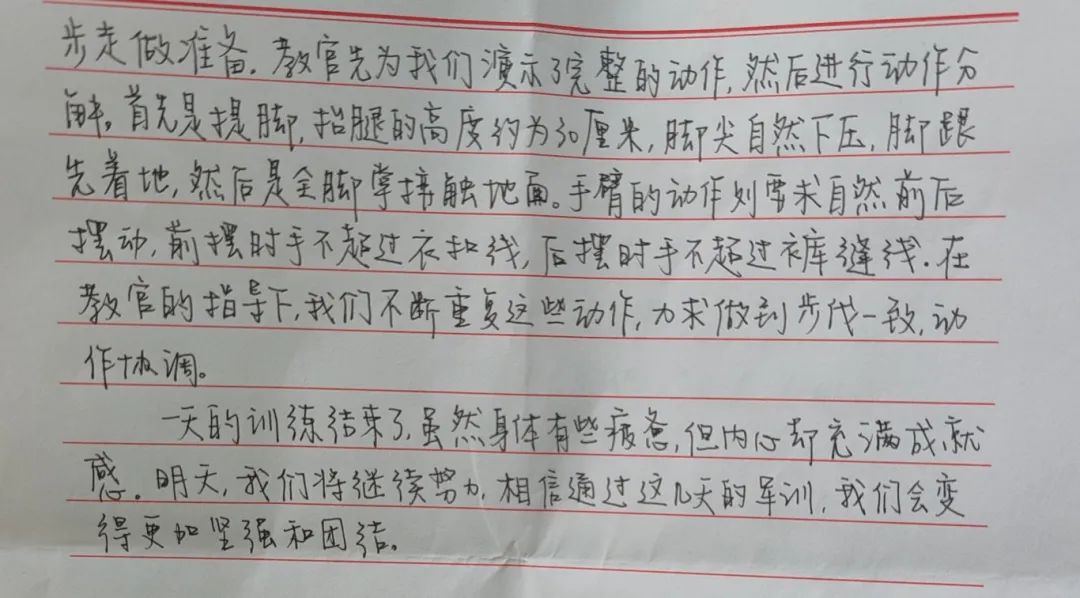 步走做准备。教官先为我们演示了完整的动作,然后进行动作分
解。首先是提脚,抬腿的高度约为30厘米,脚尖自然下压,脚跟
先着地,然后是全脚掌接触地面。手臂的动作则要求自然前后
摆动,前摆时手不超过衣扣线,后摆时手不超过裤缝线。在
教官的指导下,我们不断重复这些动作,力求做到步伐一致,动
作协调。
一天的训练结束了,虽然身体有些疲惫,但内心却充满成就
感。明天,我们将继续努力,相信通过这几天的军训,我们会变
得更加坚强和团结。